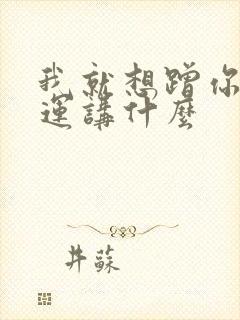 我就想蹭你
運講什麼
井蘇